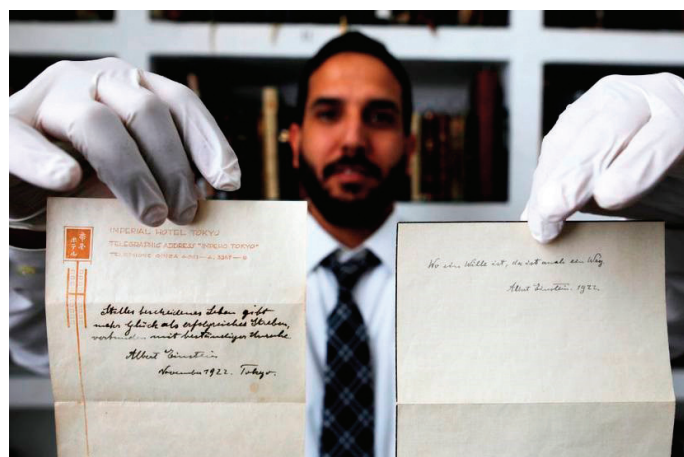 IMPERIAL HOTEL TOKYO
TELEGRAPHIC ADDRESS "IMPEHO TOKYO"
TELEPHONE GINZA
Stilles bescheidenes Leben gibt
mehr Glück als erfolgreiches Streben,
verbunden mit beständiger Unruhe
Albert Einstein
November 1922. Tokyo.
Wo ein Wille ist, da ist auch ein Weg.
Albert Einstein. 1922.